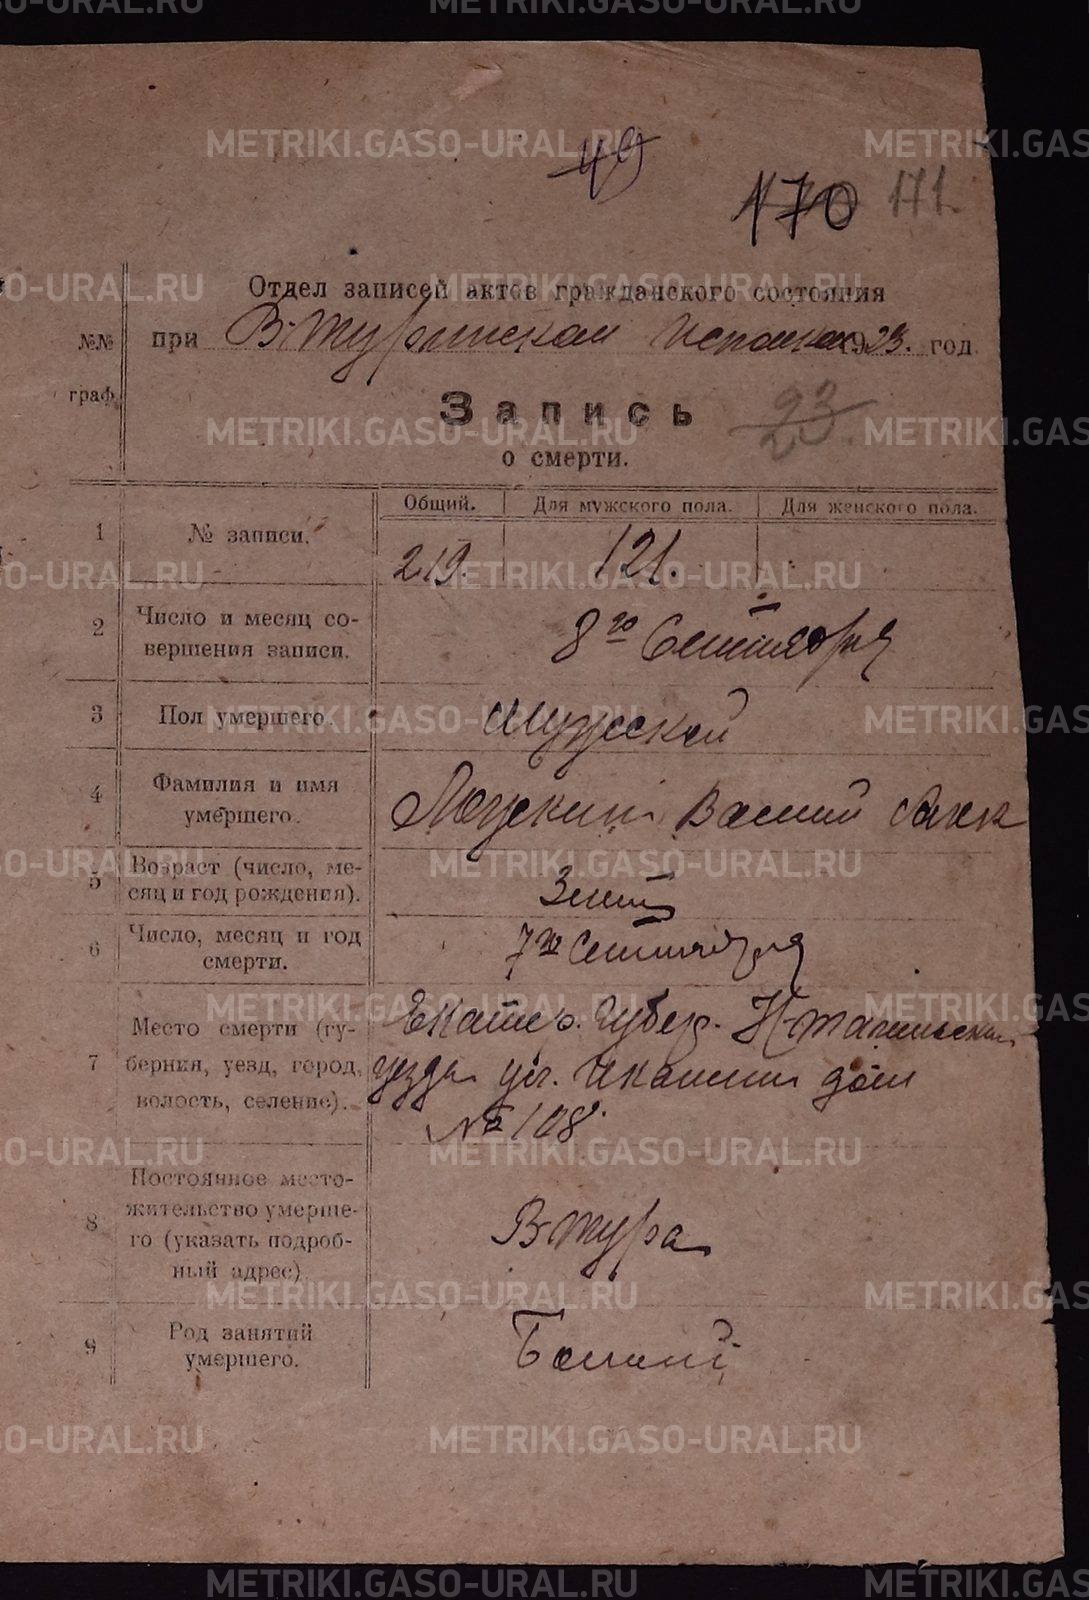 49
170 171.
Отдел записей актов гражданского состояния
№№ при В-Туринском Исполкоме 1923. год
граф.
Запись 23
о смерти.
Общий. Для мужского пола. Для женского пола.
1 № записи. 219. 121.
2 Число и месяц со-
вершения записи. 8го Сентября
3 Пол умершего. Мужской
4 Фамилия и имя
умершего. Василий
5 Возраст (число, ме-
сяц и год рождения).
6 Число, месяц и год
смерти. 7го Сентября
7 Место смерти (гу-
берния, уезд, город,
волость, селение). Екатер. Губер. Н-Тагильского
уезда ул. дом
№ 108.
8 Постоянное место-
жительство умерше-
го (указать подроб-
ный адрес). В-Тура
9 Род занятий
умершего.
METRIKI.GASO-URAL.RU